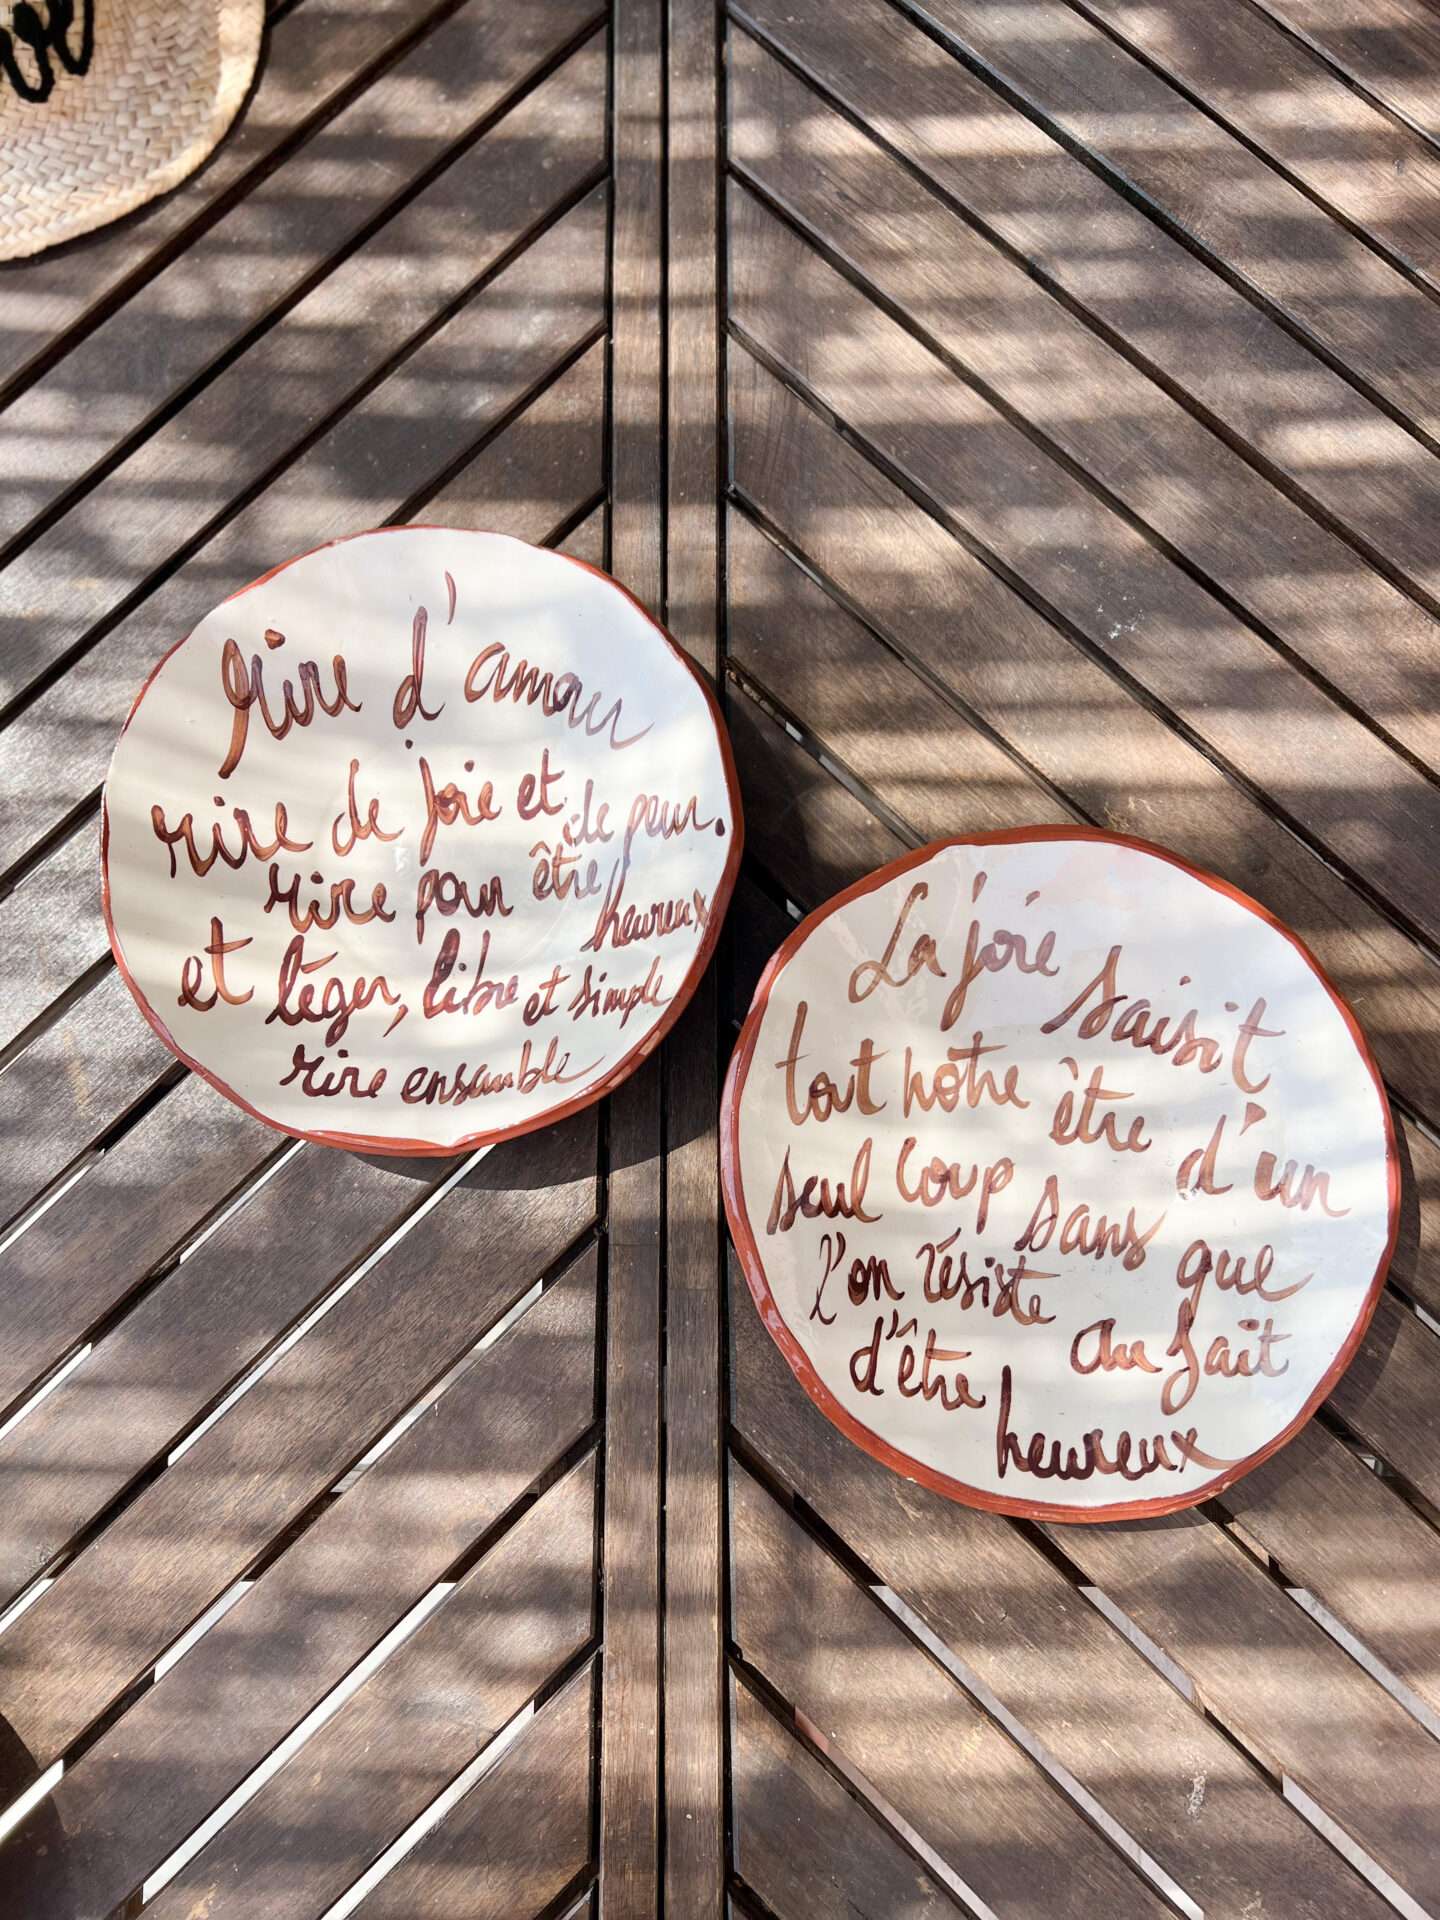 Rire d'amour
rire de joie et de peur.
rire pour être heureux
et léger, libre et simple
rire ensemble
La joie saisit
tout notre être d'un
seul coup sans que
l'on résiste au fait
d'être heureux